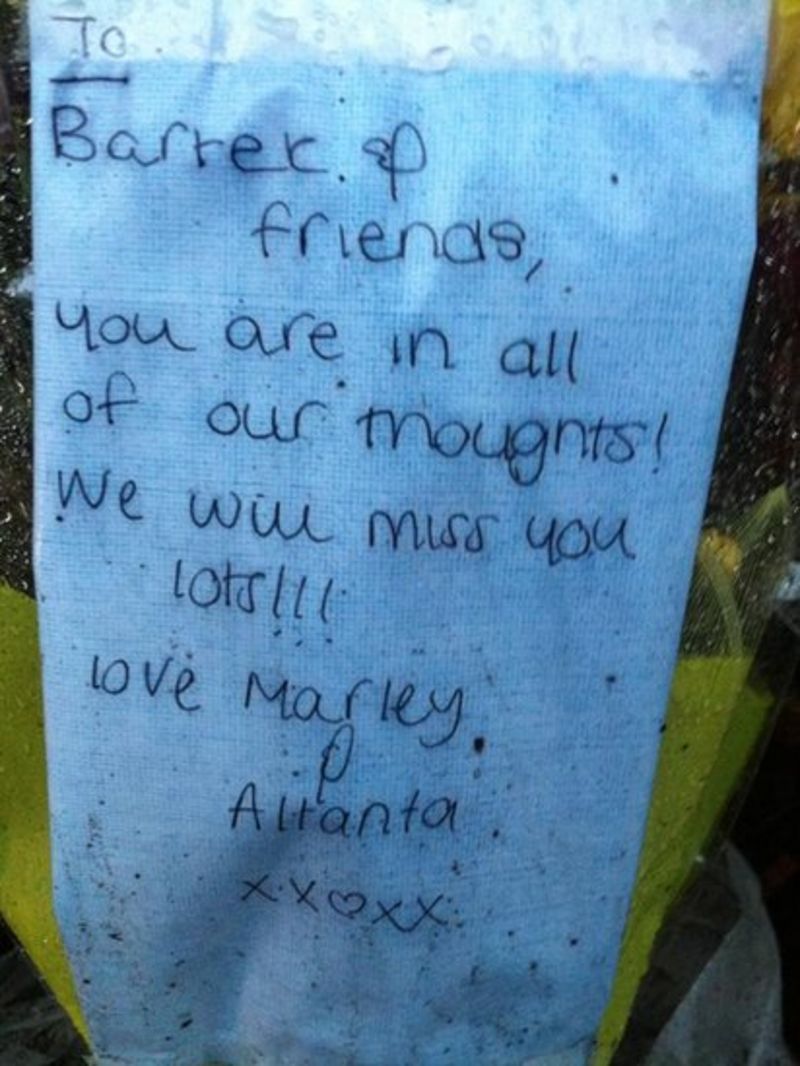 To
Bartek. &
friends,
you are in all
of our thoughts!
We will miss you
lots!!!
love Marley
&
Altanta
xx♡xx